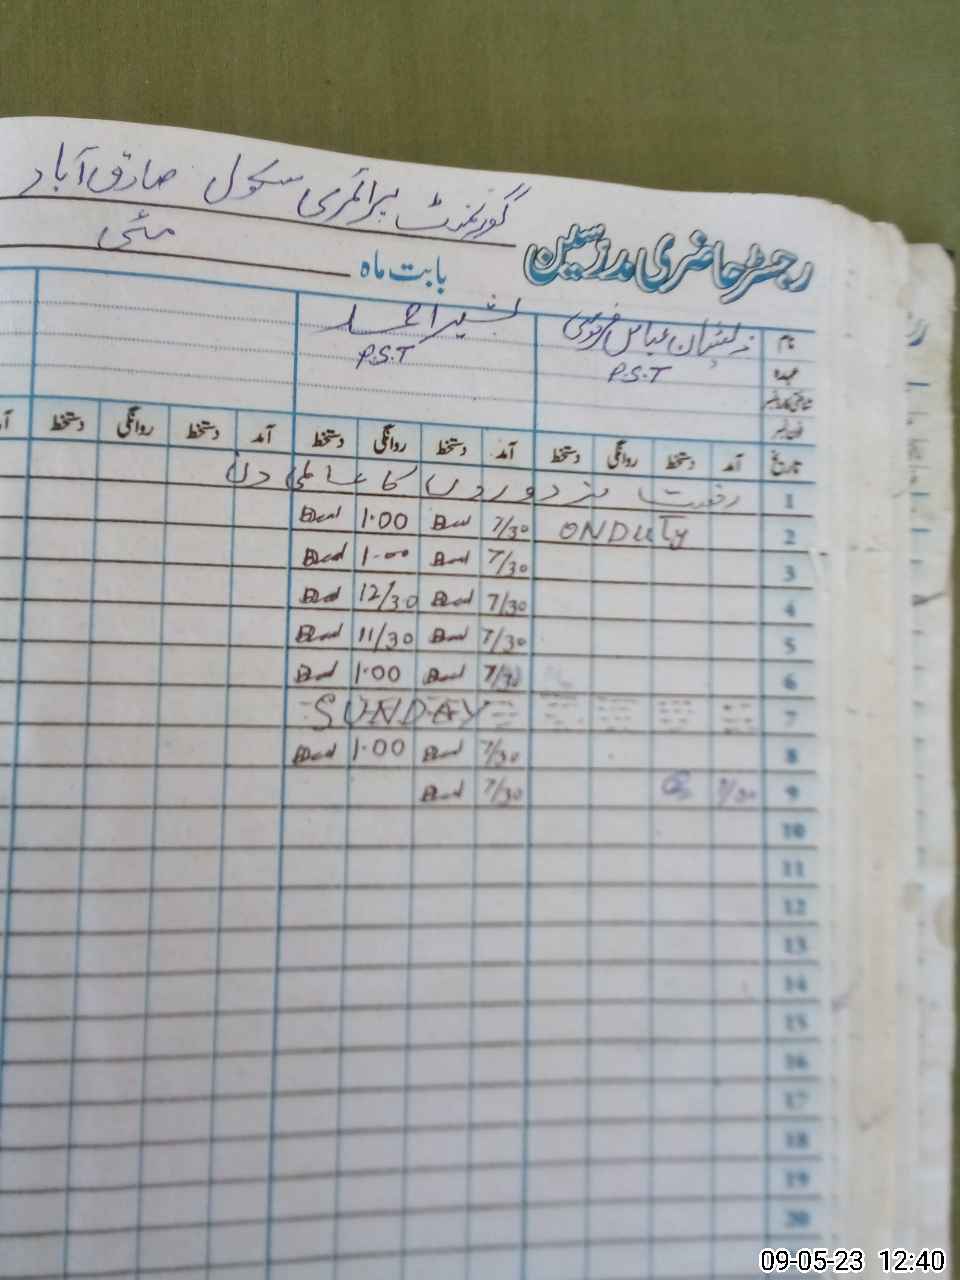 گورنمنٹ پرائمری سکول صادق آباد
رجسٹر حاضری مدرسین
بابت ماہ مئی
نام ذیشان عباس بشیر احمد
عہدہ P.S.T P.S.T
تاریخ آمد دستخط روانگی دستخط آمد دستخط روانگی دستخط آمد دستخط روانگی دستخط
1 رخصت مزدوروں کا عالمی دن
2 ONDUTY 7/30 1.00
3 7/30 1.00
4 7/30 12/30
5 7/30 11/30
6 7/30 1.00
7 SUNDAY
8 7/30 1.00
9 7/30 7/30
10
11
12
13
14
15
16
17
18
19
20
09-05-23 12:40